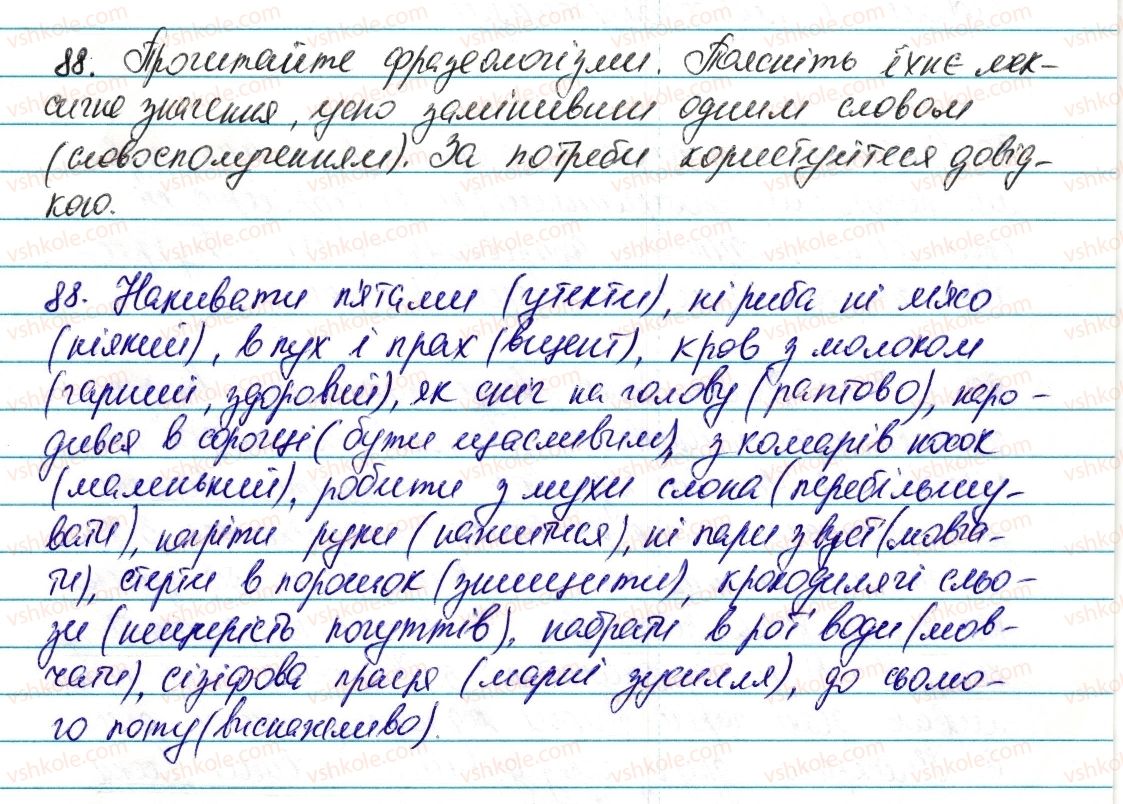 88. Прочитайте фразеологізми. Поясніть їхнє лек-
сичне значення, усно замінивши одним словом
(словосполученням). За потреби користуйтеся довід-
кою.
88. Накивати п'ятами (утекти), ні риба ні м'ясо
(ніякий), в пух і прах (вщент), кров з молоком
(гарний, здоровий), як сніг на голову (раптово), наро-
дився в сорочці (бути щасливим), з комарів носок
(маленький), робити з мухи слона (перебільшу-
вати), нагріти руки (нажитися), ні пари з вуст (мовча-
ти), стерти в порошок (знищити), крокодилячі сльо-
зи (нещирість почуттів), набрати в рот води (мов-
чати), сізіфова праця (марні зусилля), до сьомо-
го поту (виснажливо).